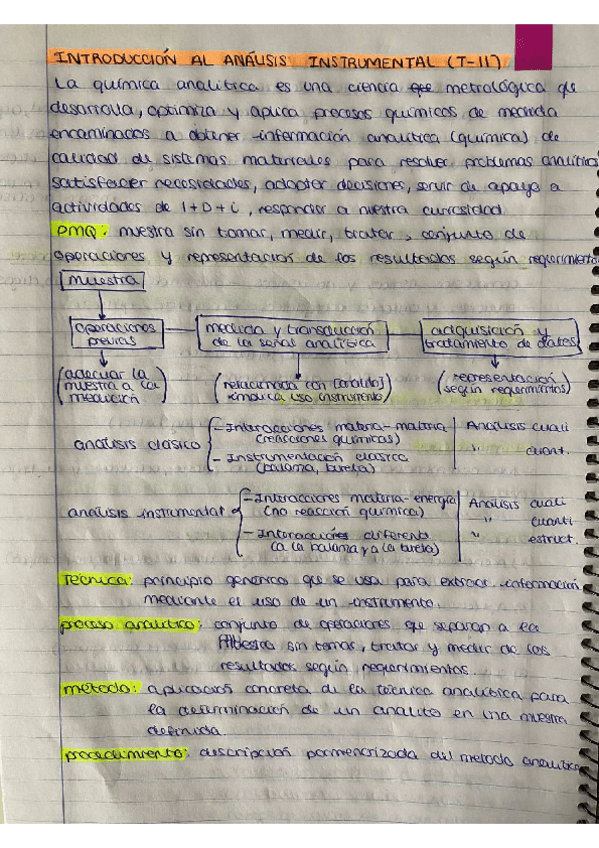 INTRODUCCIÓN AL ANÁLISIS INSTRUMENTAL (T-11)
La química analítica es una ciencia metrológica que
desarrolla, optimiza y aplica procesos químicos de medida
encaminados a obtener información analítica (química) de
calidad de sistemas materiales para resolver problemas analítico
satisfacer necesidades, adoptar decisiones, servir de apoyo a
actividades de I+D+i, responder a nuestra curiosidad.
PMQ: muestra sin tomar, medir, tratar, conjunto de
operaciones y representación de los resultados según requerimiento
muestra
operaciones previas
medida y transducción de la señal analítica
adquisición y tratamiento de datos
(adecuar la muestra a la medición)
(relacionada con [analito] implica uso instrumento)
(representación según requerimientos)
análisis clásico
- Interacciones materia-materia (reacciones químicas)
- Instrumentación clásica (balanza, bureta)
Análisis cuali
" cuant.
análisis instrumental
- Interacciones materia-energía (no reacción química)
- Interacciones diferente (a la balanza y a la bureta)
Análisis cuali
" cuanti
" estruct.
Técnica: principio genérico que se usa para extraer información
mediante el uso de un instrumento.
proceso analítico: conjunto de operaciones que separan a la
sin tomar, tratar y medir de los
resultados según requerimientos.
método: aplicación concreta de la técnica analítica para
la determinación de un analito en una muestra
definida.
procedimiento: descripción pormenorizada del metodo analítico